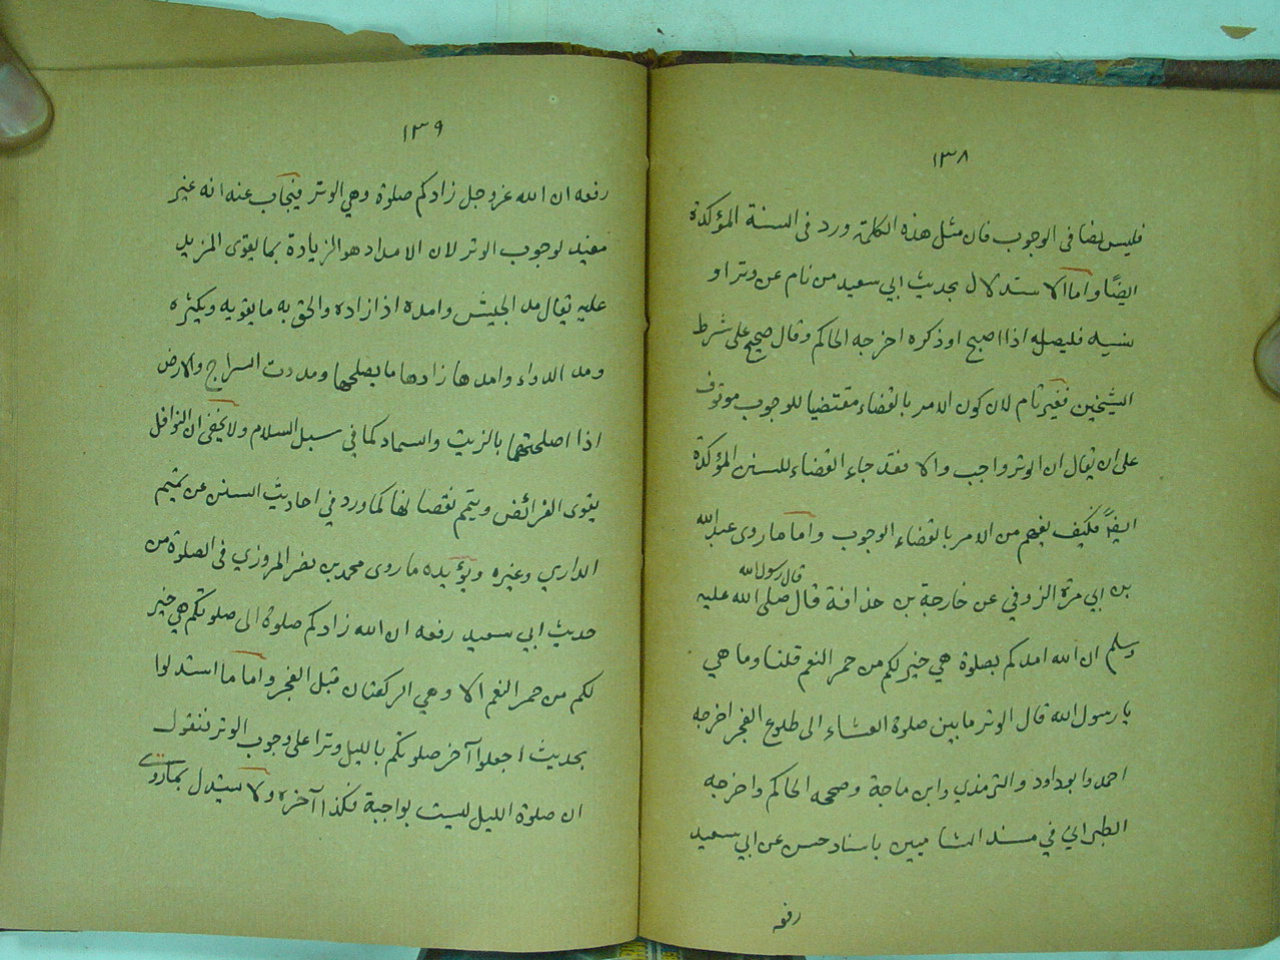 ١٣٨
فليس نصا في الوجوب فان مثل هذه الكلمة ورد في السنة المؤكدة
ايضًا واما الاستدلال بحديث ابي سعيد من نام عن وتر او
نسيه فليصله اذا اصبح او ذكره اخرجه الحاكم وقال صحيح على شرط
الشيخين فغير تام لان كون الامر بالقضاء مقتضيا للوجوب موقوف
على ان يقال ان الوتر واجب والا فقد جاء القضاء للسنن المؤكدة
ايضًا فكيف يفهم من الامر بالقضاء الوجوب واما ما روى عبد الله
بن ابي مرة الزوفي عن خارجة بن حذافة قال قال رسول الله صلى الله عليه
وسلم ان الله امدكم بصلوة هي خير لكم من حمر النعم قلنا وما هي
يا رسول الله قال الوتر ما بين صلوة العشاء الى طلوع الفجر اخرجه
احمد وابو داود والترمذي وابن ماجة وصححه الحاكم واخرجه
الطبراني في مسند الشاميين باسناد حسن عن ابي سعيد
رفعه
١٣٩
رفعه ان الله عز وجل زادكم صلوة وهي الوتر فيجاب عنه انه غير
مفيد لوجوب الوتر لان الامداد هو الزيادة بما يقوى المزيد
عليه يقال مد الجيش وامده اذا زاده والحق به ما يقويه ويكثره
ومد الدواة وامدها زادها ما يصلحها ومددت السراج والارض
اذا اصلحتهما بالزيت والسماد كما في سبل السلام ولا يخفى ان النوافل
يقوى الفرائض ويتمم نقصانها كما ورد في احاديث السنن عن تميم
الداري وغيره ويؤيده ما روى محمد بن نصر المروزي في الصلوة من
حديث ابي سعيد رفعه ان الله زادكم صلوة الى صلوتكم هي خير
لكم من حمر النعم الا وهي الركعتان قبل الفجر واما ما استدلوا
بحديث اجعلوا آخر صلوتكم بالليل وترا على وجوب الوتر فنقول
ان صلوة الليل ليست بواجبة فكذا آخره ولا يستدل بما روى